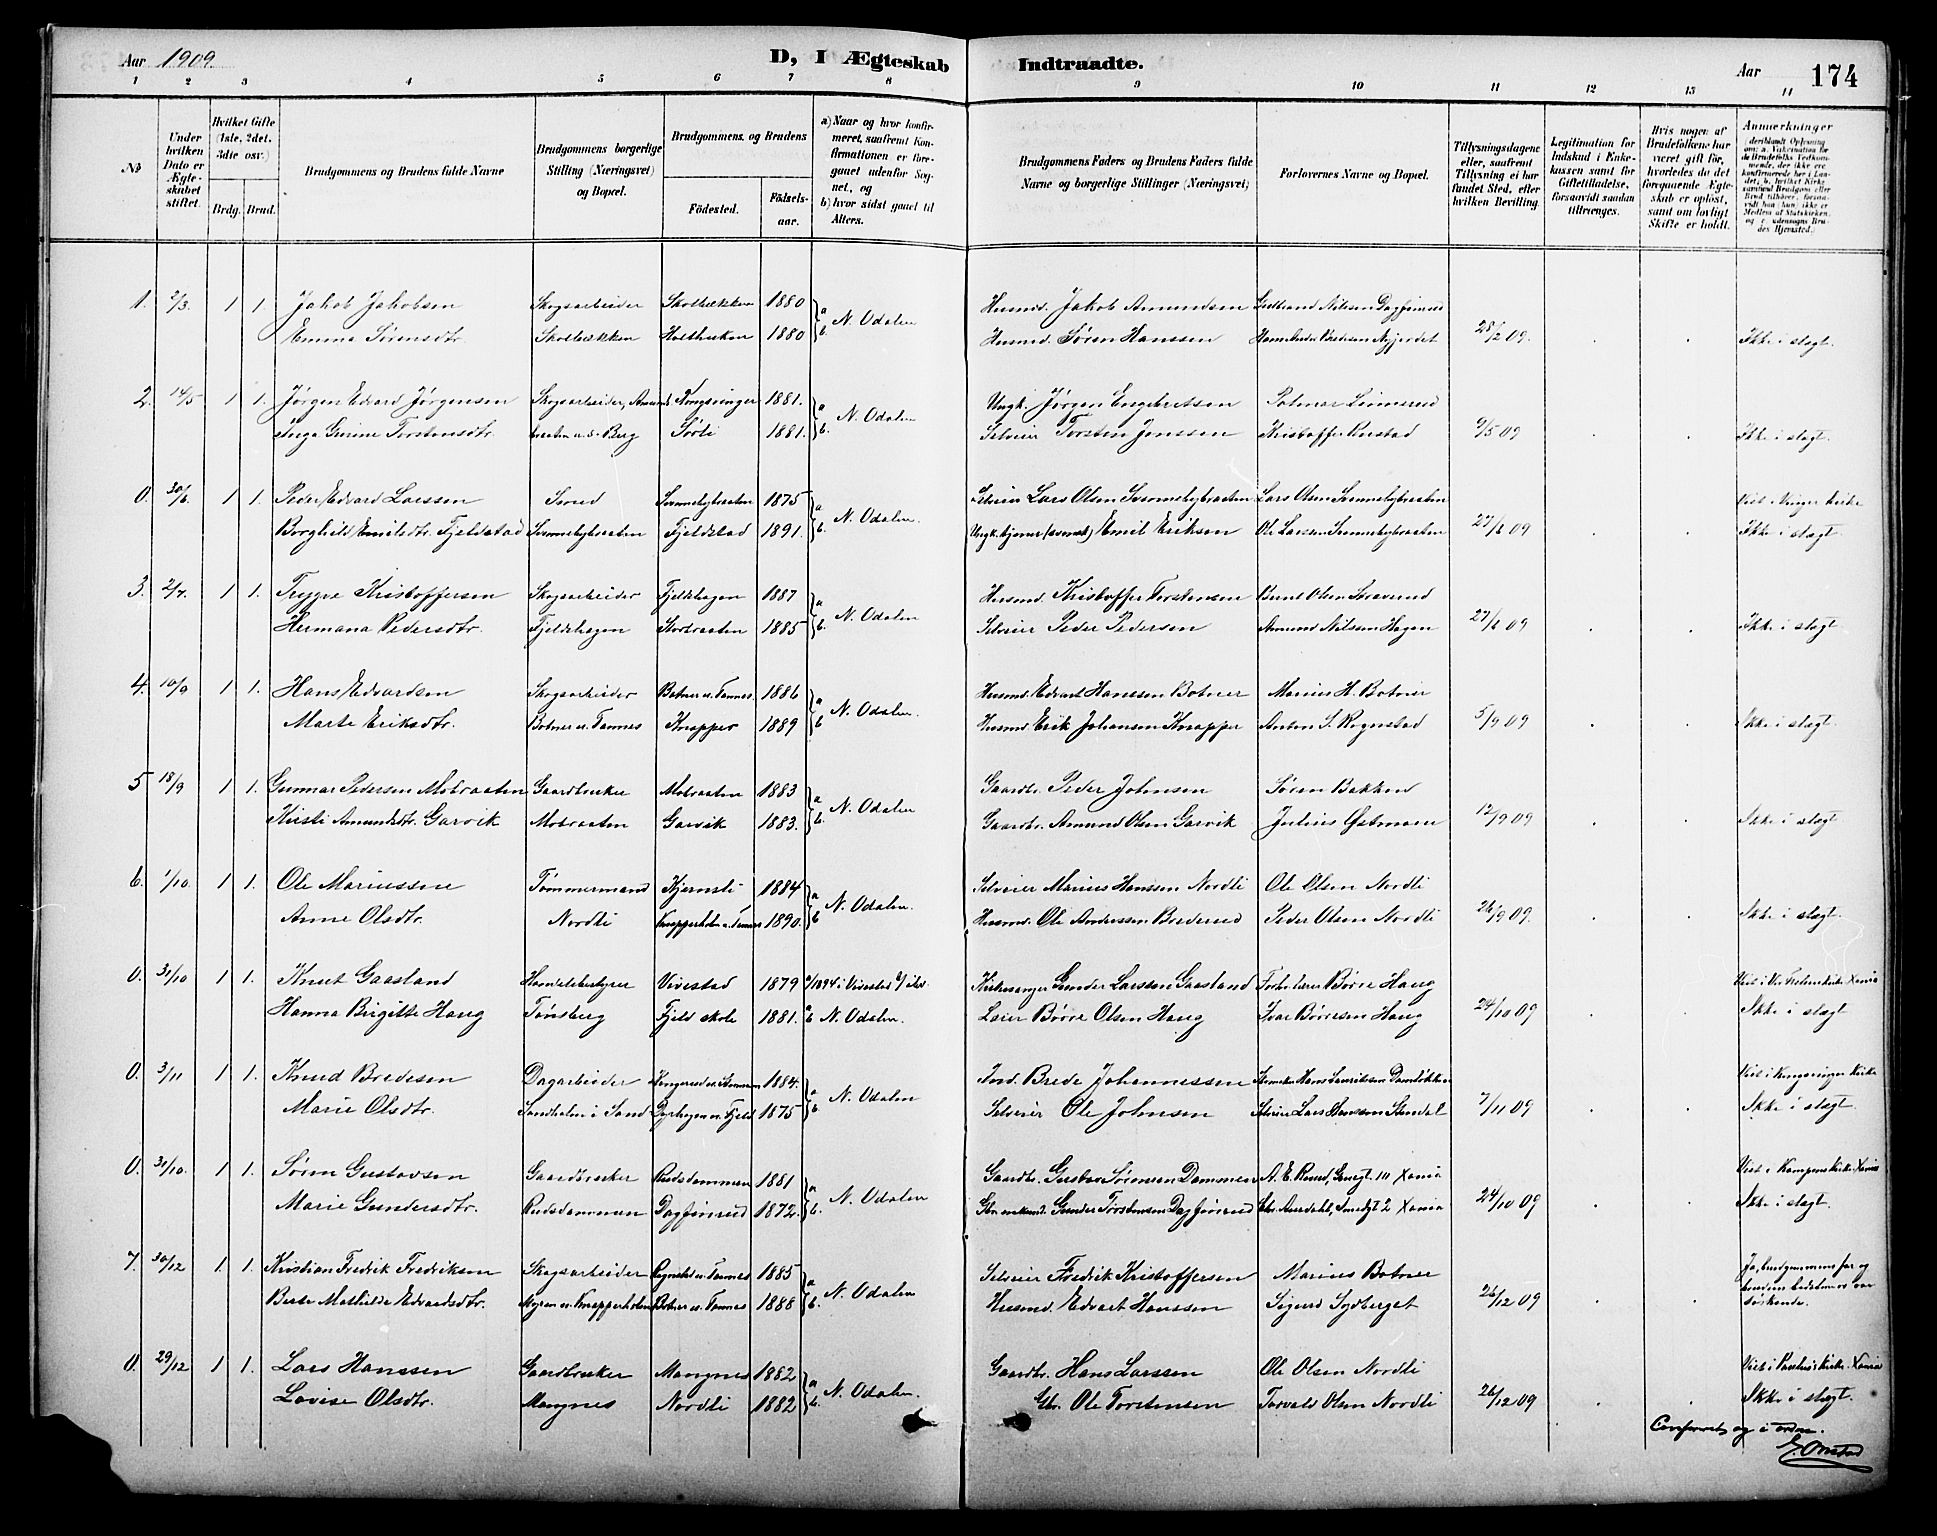 Aar 1909.
D, I Ægteskab Indtraadte.
Aar 174
1 2 3 4 5 6 7 8 9 10 11 12 13 14
No
Under hvilken Dato er Ægteskabet stiftet.
Hvilket Gifte (1ste, 2det, 3die osv.)
Brdg. Brud.
Brudgommens og Brudens fulde Navne
Brudgommens borgerlige Stilling (Næringsvei) og Bopæl.
Brudgommens og Brudens
Fødested.
Fødselsaar.
a) Naar og hvor konfirmeret, saafremt Konfirmationen er foregaaet udenfor Sognet, og
b) hvor sidst gaaet til Alters.
Brudgommens Faders og Brudens Faders fulde Navne og borgerlige Stillinger (Næringsvei)
Forlovernes Navne og Bopæl.
Tillysningsdagene eller, saafremt Tillysning ei har fundet Sted, efter hvilken Bevilling.
Legitimation for Indskud i Enkekassen samt for Giftetilladelse, forsaavidt saadan tiltrænges.
Hvis nogen af Brudefolkene har været gift før, hvorledes da det foregaaende Ægteskab er opløst, samt om lovligt Skifte er holdt.
Anmærkninger
1. 2/3. 1 1. Jakob Jakobsen Skogsarbeider 1880 a N. Odalen Husmd. Jakob Amundsen
Emma Sørensdtr. 1880 b. Husmd. Søren Hanssen 28/2 09. Ikke i slægt.
2. 14/5 1 1. Jørgen Edvard Jørgensen Skogsarbeider, Kongsvinger 1881. a N. Odalen Ungk. Jørgen Engebretsen Palmar Linnerud
Inga Gurine Torstensdtr. Berg Sørli 1881. b. Selveier Torsten Jonssen 9/5 09 Ikke i slægt.
0. 30/6 1 1. Peder Edvard Larssen Smed 1875 a N. Odalen. Selveier Lars Olsen Lars Olsen Viet i Vinger kirke
Borghild Emilsdtr. Fjeldstad Fjeldstad 1891. b. Emil Eriksen Ole Larssen 27/6 09 Ikke i slægt.
3. 2/7. 1 1. Trygve Kristoffersen Skogsarbeider Fjeldhagen 1887 a N. Odalen Husmd. Kristoffer Torstensen Bernt Olsen
Hermana Pedersdtr. Fjeldhagen 1885 b. Selveier Peder Pedersen Amund Nilsen Hagen 27/6 09 Ikke i slægt
4. 10/9 1 1. Hans Edvardsen Skogsarbeider Botner u. Tannes 1886 a N. Odalen. Husmd. Edvart Hanssen Botner Marius H. Botner
Marte Eriksdtr. Botner u. Tannes Knapper 1889 b Husmd. Erik Johansen Knapper Anton S. Rognstad 5/9 09 Ikke i slægt.
5 18/9 1 1. Gunnar Pedersen Motraaten Gaardbruker Motraaten 1883 a N. Odalen Gaardbr. Peder Johnsen Søren Bakken
Kirsti Amundsdtr. Garvik Motraaten Garvik 1883. b. Gaardbr. Amund Olsen Garvik Julius Østmoen 12/9 09 Ikke i slægt
6. 1/10. 1 1. Ole Mariussen Tømmermand Kjernsli 1884 a N. Odalen. Selveier Marius Hanssen Nordli Ole Olsen Nordli
Anne Olsdtr. Nordli Knapperholn u. Tannes 1890. b Husmd. Ole Anderssen Brederud Peder Olsen Nordli 26/9 09. Ikke i slægt.
0. 31/10 1 1. Knut Gaasland Handelsbestyrer Vivestad 1879 a/1894 i Vivestad Kirkesanger Gunder Larssen Gaasland Børre Haug
Hanna Birgitte Haug Tønsberg Fjeld skole 1881. b N. Odalen. Lærer Børre Olsen Haug Ivar Børresen Haug 24/10 09 Ikke i slægt
0. 3/11 1 1. Knud Bredesen Dagarbeider 1884. a N. Odalen Ind. Brede Johannessen Viet i Kongsvinger Kirke
Marie Olsdtr. Sandholen i Sand 1875 b. Selveier Ole Johnsen Selveier Lars Hanssen Stendal 7/11 09 Ikke i slægt.
0. 31/10. 1 1. Søren Gustavsen Gaardbruker Rudsdammen 1881 a N. Odalen Gaardbr. Gustav Sørensen Dammen A. E. Ruud, Xania Viet i Kampens Kirke Xania
Marie Gundersdtr. Rudsdammen Dagfinrud 1872. b. Gunder Torstensen Dagfinrud Xania 24/10 09 Ikke i slægt.
7. 30/12 1. 1. Kristian Fredrik Fredriksen Skogsarbeider Rognstad u. Tannes 1885 a N. Odalen Selveier Fredrik Kristoffersen Marius Botner Ja, brudgommens far og
Berte Mathilde Edvardsdtr. Myren u. Knapperholen Botner u. Tannes 1888 b. Husmd. Edvart Hanssen Sigurd Sydberget 26/12 09 brudens bedstemor var søskende.
0. 29/12 1 1. Lars Hanssen Gaardbruker Mangnes 1882 a N. Odalen Gaardbr. Hans Larssen Ole Olsen Nordli Viet i Paulus Kirke Xania
Lovise Olsdtr. Mangnes Nordli 1882 b. Gbr. Ole Torstensen Torvald Olsen Nordli 26/12 09 Ikke i slægt.
Conferert og i orden.
E. Onstad